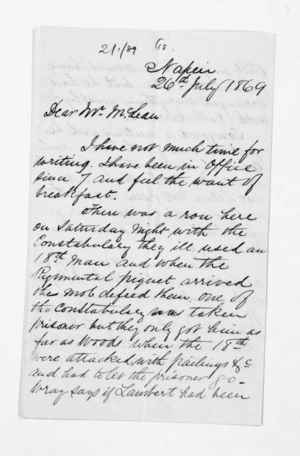 Napier
26th July 1869
Dear Mr. McLean
I have not much time for
writing. I have been in Office
since 7 and feel the want of
breakfast.
There was a row here
on Saturday night with the
Constabulary they ill used an
18th Man and when the
Regimental piquet arrived
the mob defied them, one of
the Constabulary was taken
prisoner but they only got him as
far as Woods when the 18th
were attacked with pailings &c
and had to let the prisoner go -
Wray says if Lambert had been